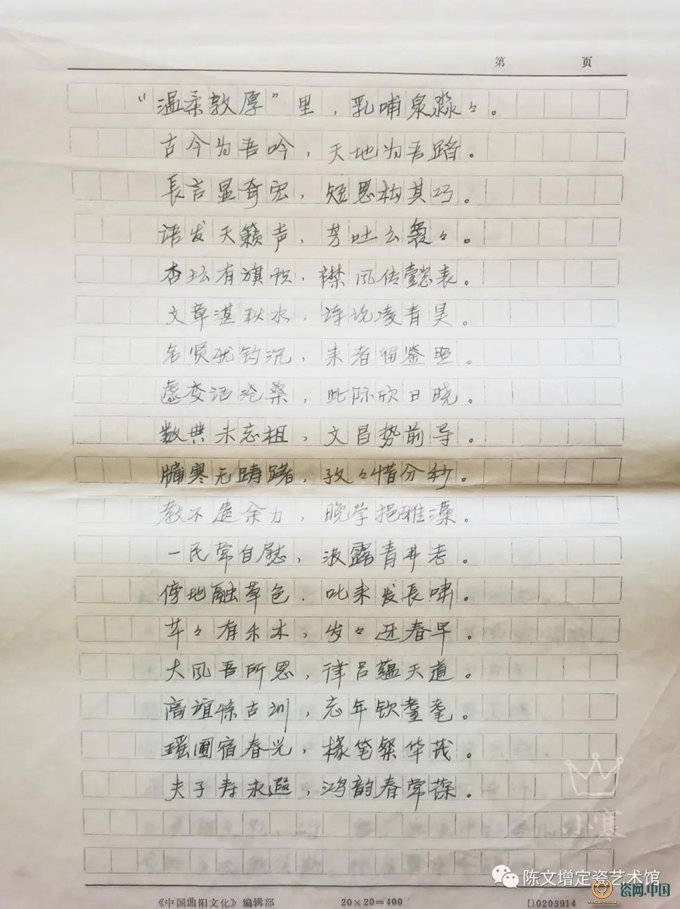 第 页
“温柔敦厚”里，乳哺泉淼々。
古今为吾吟，天地为吾路。
長言显奇宏，短思构其巧。
语发天籁声，芳吐云袅々。
杏坛有旗帜，襟风传懿表。
文章湛秋水，诗说凌青昊。
名贤犹钓沉，来者留鉴照。
虚变话沧桑，此际欣日晓。
数典未忘祖，文昌势前导。
膈寒无踌躇，孜々惜分秒。
教不遗余力，晚学挹雅藻。
一民常自慰，泼露青丹老。
傍地融草色，叱来发長啸。
芊々有禾木，岁々迓春早。
大风吾所思，律吕蕴天道。
高谊惊古训，忘年钦耋耄。
瑶圃宿春光，椽笔粲华茂。
夫子寿永遐，鸿韵春常葆。
小寒
陈文增定瓷艺术馆
瓷网.中国
《中国曲阳文化》编辑部 20×20=400 D0203914